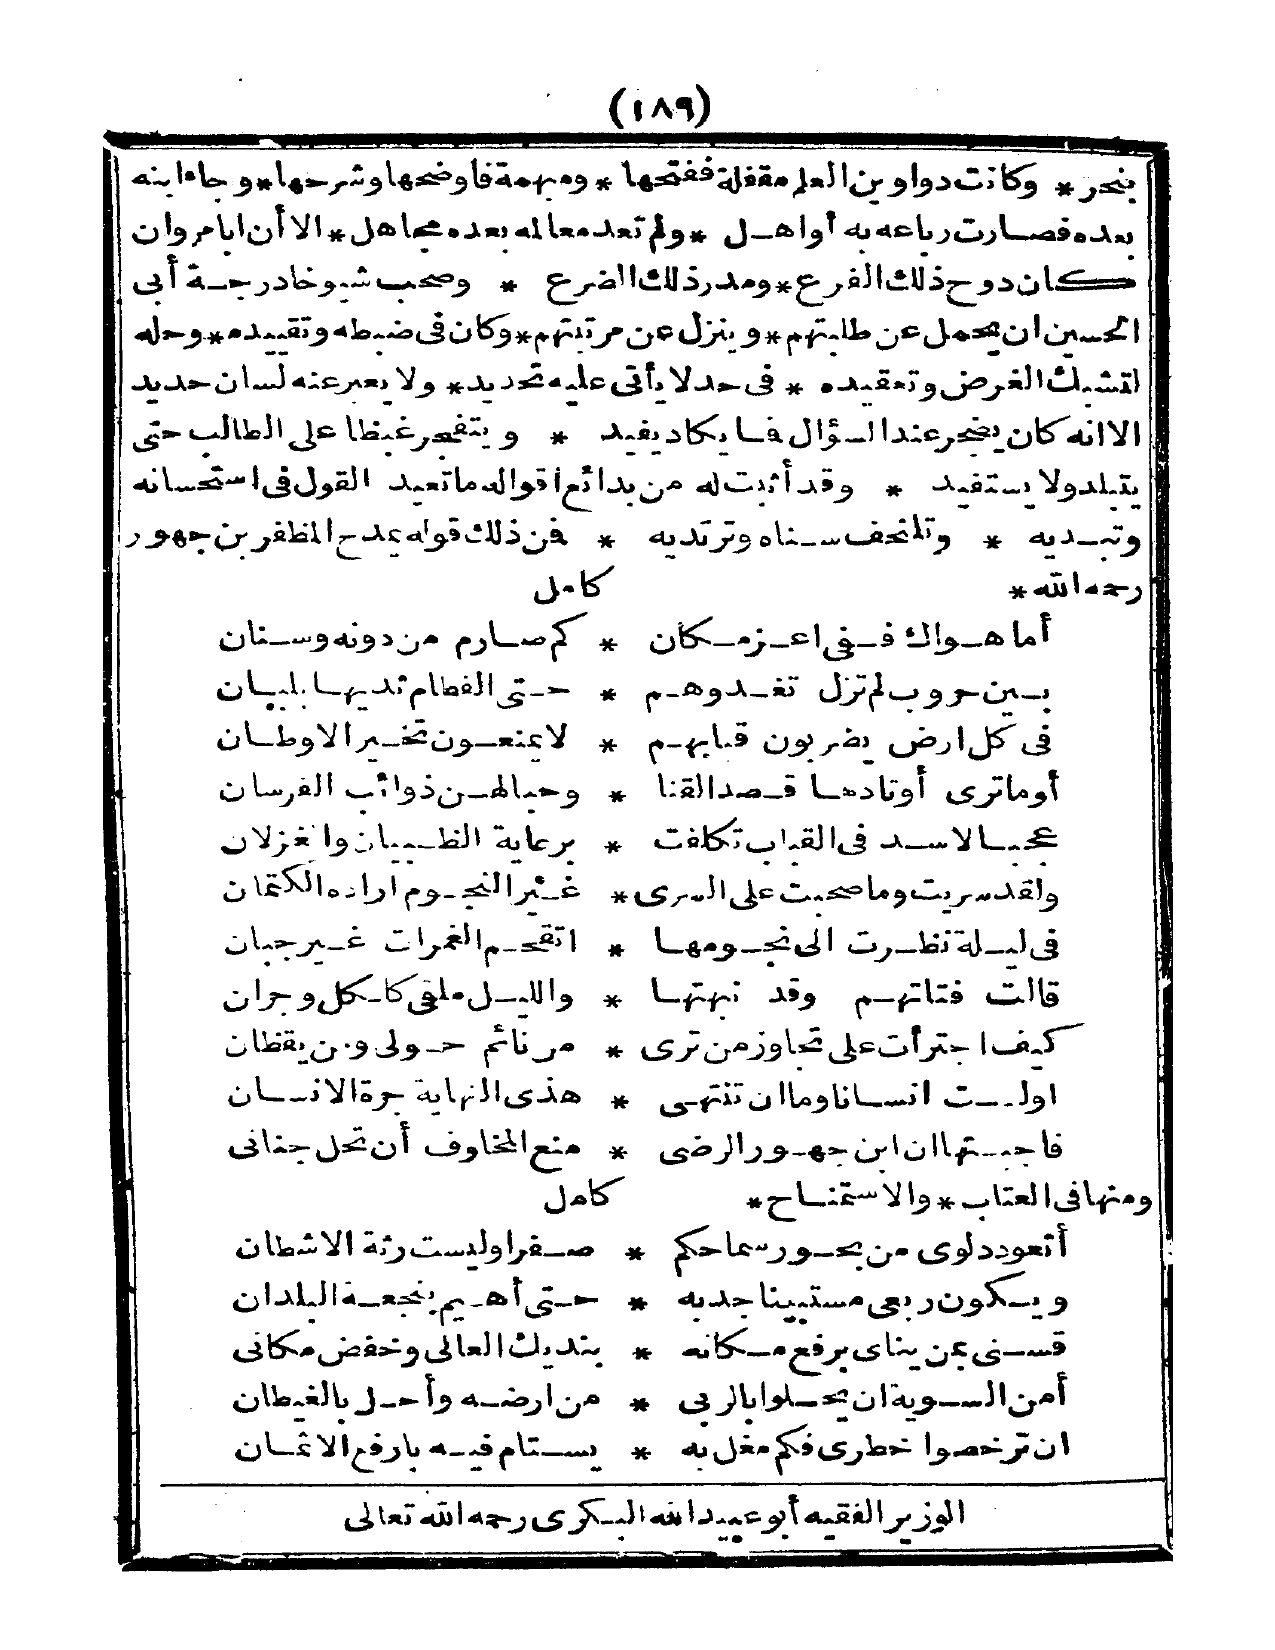 (١٨٩)
ينحر * وكانت دواوين العلم مقفلة ففتحها * ومبهمة فأوضحها وشرحها * وجاء ابنه
بعده فصارت رباعه به أواهل * ولم تعد معالمه بعده مجاهل * الا أن ابامروان
كان دوح ذلك الفرع * ومدر ذلك الضرع * وصحب شيوخا درجة أبى
الحسين ان يحمل عن طلبتهم * وينزل عن مرتبتهم * وكان فى ضبطه وتقييده * وحله
لتشبك الغرض وتعقيده * فى حد لا يأتى عليه تحديد * ولا يعبر عنه لسان حديد
الا انه كان يضجر عند السؤال فما يكاد يفيد * ويتفجر غيظا على الطالب حتى
يتبلد ولا يستفيد * وقد أثبت له من بدائع اقواله ما تعيد القول فى استحسانه
وتبديه * وتلتحف سناه وترتديه * فمن ذلك قوله يمدح المظفر بن جهور
رحمه الله * كامل
أما هواك ففى اعز مكان * كم صارم من دونه وسنان
بين حروب لم تزل تغدوهم * حتى الفطام ثديها بلبان
فى كل ارض يضربون قبابهم * لا يمنعون تخير الاوطان
أوما ترى أوتادها قصد القنا * وحبالهن ذوائب الفرسان
عجبا لاسد فى القباب تكلفت * برعاية الظبيان والغزلان
ولقد سريت وما صحبت على السرى * غير النجوم اراده الكتمان
فى ليلة نظرت الى نجومها * اتقحم الغمرات غير جبان
قالت فتاتهم وقد نبهتها * والليل ملقى كلكل وجران
كيف اجترأت على تجاوز من ترى * من نائم حولى ومن يقظان
اولست انسانا وما ان تنتهى * هذى النهاية جرة الانسان
فاجبتها ان ابن جهور الرضى * منع المخاوف أن تحل جنانى
ومنها فى العتاب * والاستمناح * كامل
أتعود دلوى من بحور سماحكم * صفرا وليست رثة الاشطان
ويكون ربعى مستبينا جدبه * حتى أهيم بنجعة البلدان
قسنى بمن يناى برفع مكانه * بنديك العالى وخفض مكانى
أمن السوية ان يحلوا بالربى * من ارضه وأحل بالغيطان
ان ترخصوا خطرى فكم مغل به * يستام فيه بارفع الاثمان
الوزير الفقيه أبو عبيد الله البكرى رحمه الله تعالى